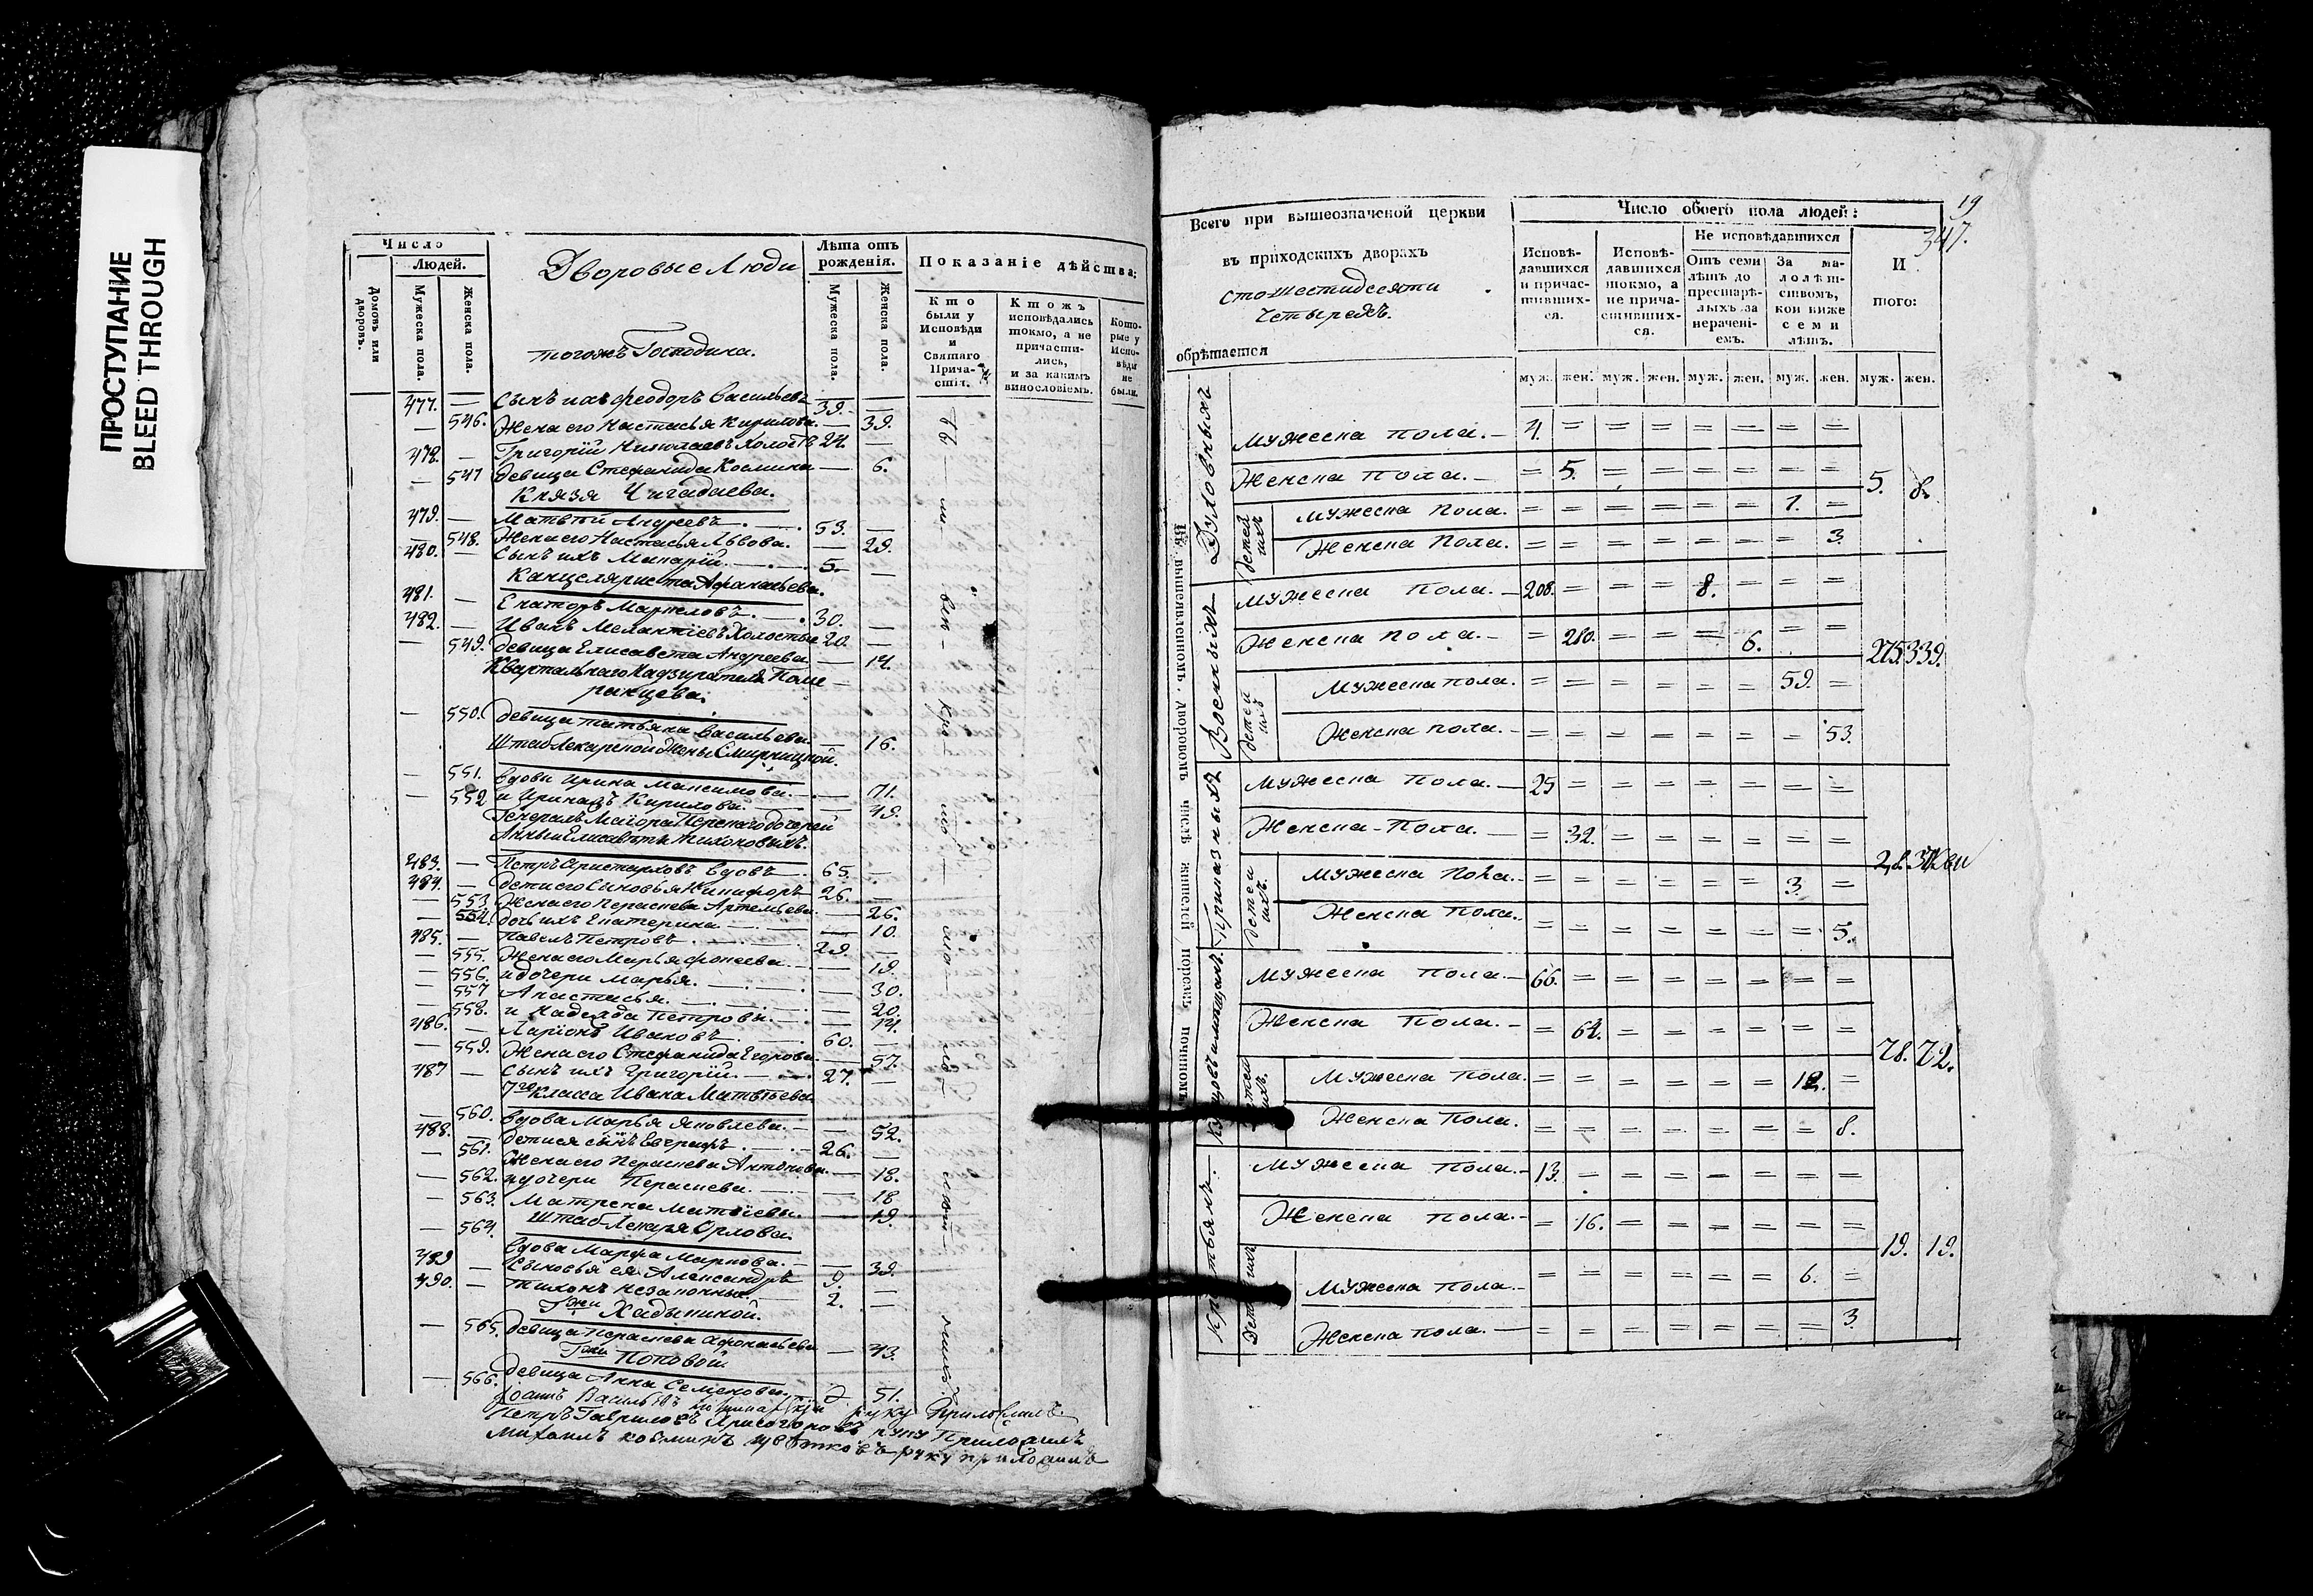 ПРОСТУПАНИЕ
BLEED THROUGH
Число
Людей.
Домовъ или дворовъ.
Мужеска пола.
Женска пола.
Дворовые Люди
тогожъ Господина.
Лѣта отъ рожденія.
Мужеска пола.
Женска пола.
Показаніе дѣйства;
Кто были у Исповѣди и Святаго Причастія.
Ктожъ исповѣдались токмо, а не причастились, и за какимъ винословіемъ.
Которые у Исповѣди не были.
477. — Сынъ ихъ Феодоръ Васильевъ 39. —
— 546. Жена его Настасья Кирилова. — 39.
478. — Григорій Николаевъ Холостъ 24. —
— 547 Девица Стефанида Космина — 6.
Князя Чигадаева.
479. — Матвѣй Андреевъ 53. —
— 548. Жена его Настасья Львова. — 29.
480. — Сынъ ихъ Макарій 5. —
Канцеляриста Афанасьева.
481. — Екаторъ Маркеловъ 30. —
482. — Иванъ Мелантіевъ Холостые 20. —
— 549. Девица Елисавета Андреева — 14.
Квартальнаго Надзирателя Поме
ранцева.
— 550. Девица Татьяна Васильева — 16.
Штаблекарской Жены Смирницкой.
— 551. Вдовы Ирина Максимова. — 71.
— 552 и Ирина Кирилова. — 49.
Генералъ Маіора Перскаго дочерей
Анны и Елисаветы Тихоновыхъ.
483. — Петръ Аристарховъ Вдовъ 65. —
484. — дети его Сыновья Никифоръ 26. —
— 553 Жена его Параскева Артемьева. — 26.
— 554. дочь ихъ Екатерина — 10.
485. — Павелъ Петровъ 29. —
— 555. Жена его Марья Фокеева — 19.
— 556. и дочери Марья. — 30.
— 557 Анастасья. — 20.
— 558. и Надежда Петровы. — 14.
486. — Ларіонъ Ивановъ 60. —
— 559. Жена его Стефанида Егорова — 57.
487 — Сынъ ихъ Григорій. 27. —
7го Класса Ивана Матвѣева
— 560. Вдова Марья Яковлева. — 52.
488. — дети ея сынъ Евграфъ 26. —
— 561. Жена его Параскева Антонова — 18.
— 562. и дочери Параскева. — 18
— 563. Матрена Матвѣевы. — 19.
Штаб-Лекаря Орлова.
— 564. Вдова Марфа Маркова. — 39.
489 — Сыновья ея Александръ 9. —
490. — Тихонъ незаконные. 2. —
Гжи Хадыкиной.
— 565. Девица Параскева Афонасьева — 43.
Гжи Поповой
— 566. Девица Анна Семенова. — 51.
Петръ Гавриловъ Хрисогоновъ руку Приложилъ
Михаилъ Космичъ Цвѣтковъ руку приложилъ
19
347.
Всего при вышеозначеной церкви
въ приходскихъ дворахъ
стошестидесяти
четырехъ.
обрѣтается
Число обоего пола людей:
Исповѣдавшихся и причастившихся.
Исповѣдавшихся токмо, а не причастившихся.
Не исповѣдавшихся
Отъ семи лѣтъ до престарѣлыхъ за нераченіемъ.
За малолѣтствомъ, кои ниже семи лѣтъ.
И того:
муж. жен. муж. жен. муж. жен. муж. жен. муж. жен.
Въ вышеявленномъ дворовомъ числѣ жителей порознь починомъ.
Духовныхъ
Мужеска пола. — 4. = = = = = = =
Женска пола. — = 5. = = = = = =
Детей ихъ
Мужеска пола. = = = = = = 1. =
Женска пола. = = = = = = = 3.
5. 8.
Военныхъ
Мужеска пола. — 208. = = = 8. = = =
Женска пола. — = 280. = = = 6. = =
детей ихъ
Мужеска пола. = = = = = = 59. =
Женска пола. = = = = = = = 53.
275. 339.
Приказныхъ
Мужеска пола. — 25 = = = = = = =
Женска пола. — = 32. = = = = = =
детей ихъ.
Мужеска пола. = = = = = = 3. =
Женска пола. = = = = = = = 5.
28. 37.
Купцовъ и мѣщанъ.
Мужеска пола. — 66. = = = = = = =
Женска пола. — = 64. = = = = = =
детей ихъ.
Мужеска пола. = = = = = = 12. =
Женска пола. = = = = = = = 8.
78. 72.
Крестьянъ.
Мужеска пола. — 13. = = = = = = =
Женска пола. — = 16. = = = = = =
Детей ихъ
Мужеска пола. = = = = = = 6. =
Женска пола. = = = = = = = 3.
19. 19.